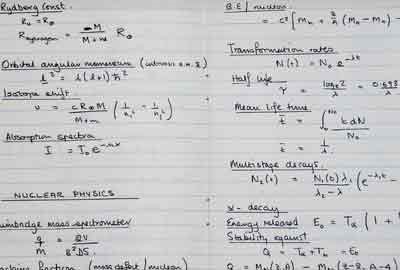 Rydberg Const.
R∞ = R∞
R hydrogen = M / M + m R∞
Orbital angular momentum
l² = l(l+1)ħ²
Isotope shift
ν = cR∞M / M+m (1/n₁² - 1/n₂²)
Absorption spectra
I = I₀e^-nσx
NUCLEAR PHYSICS
Bainbridge mass spectrometer
q/M = 2V / B²DS
(mass defect / nucleon)
B.E / nucleon
= c² [Mn + Z/A (MH - Mn) -
Transformation rates
N(t) = N₀ e^-λt
Half life
τ = loge2 / λ = 0.693 / λ
Mean life time
t̄ = ∫₀^N₀ t dN / N₀
t̄ = 1/λ
Multistage decays.
N₂(t) = N₁(0) λ₁ / λ₂ - λ₁ (e^-λ₁t -
α - decay
Energy released E₀ = Tα (1 +
Stability against
Q = Tα + Tb = E₀
Q = - (Z-2, A-4)